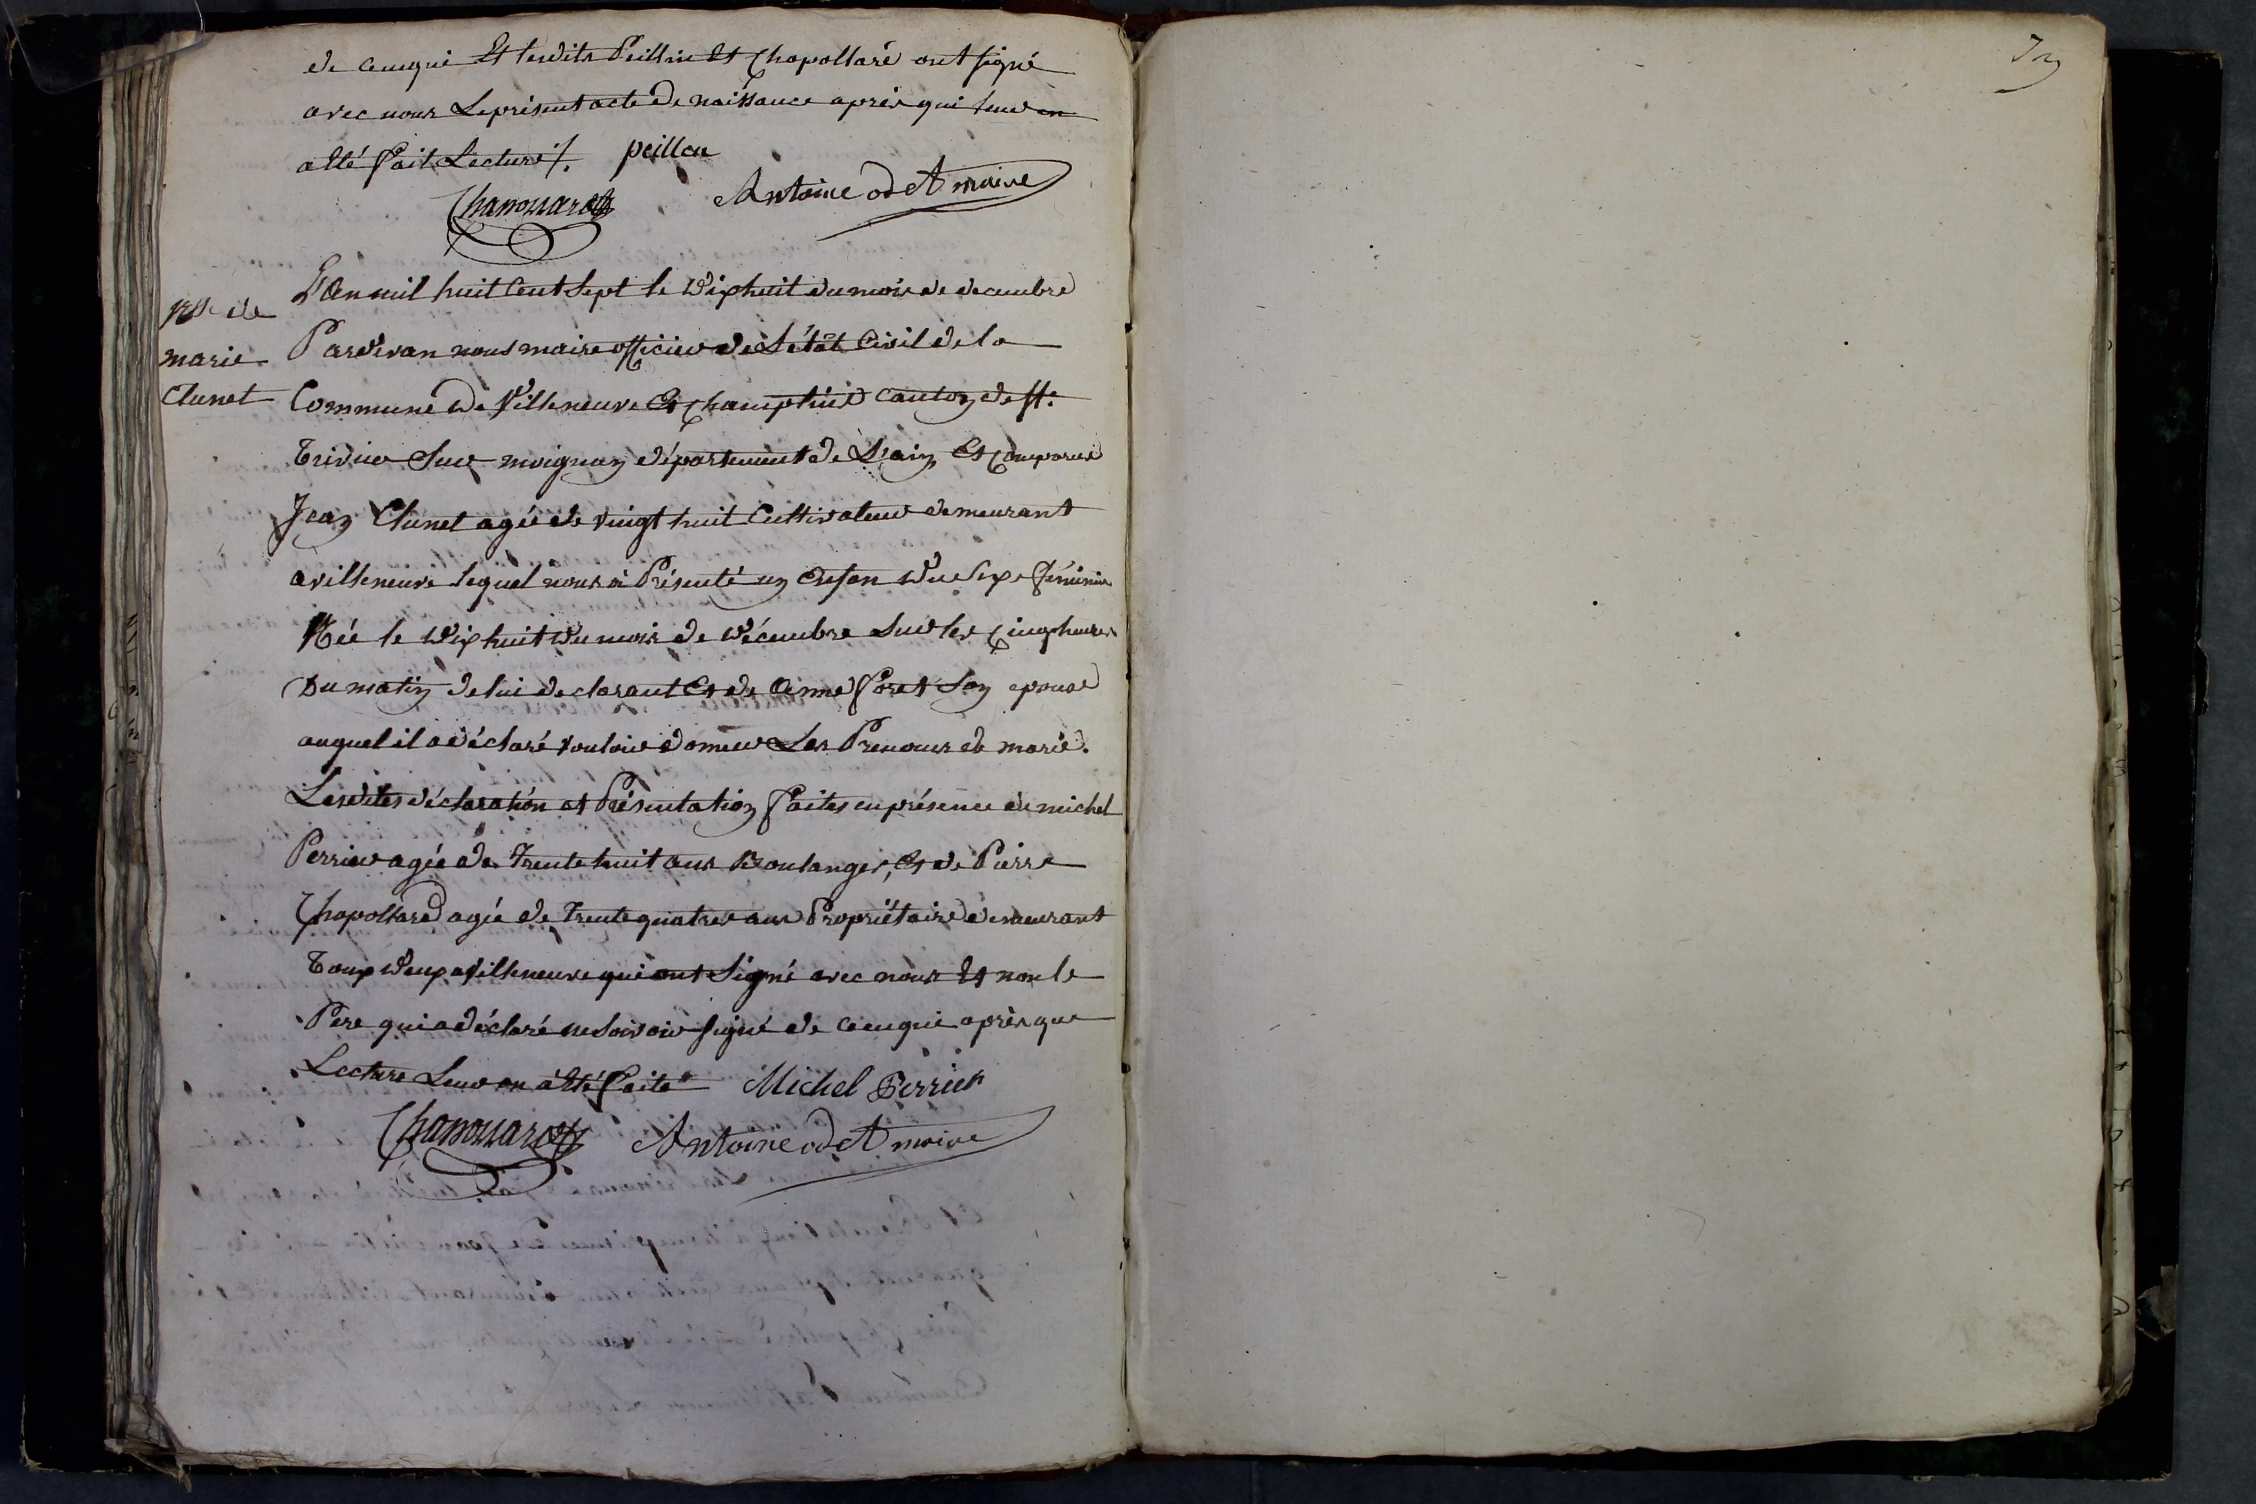 de ceuqui Et lesdits Peillin Et Chapollard ont signé
avec nous Le présent acte De naissance après qui leur en
a Eté fait Lecture ⁒. peillen
Antoine odet maire
nss. de
marie
Clunet
L'an mil huit cent Sept le Dix huit du mois de decembre
Pardevan nous maire officier de L'état Civil de la
Commune De Villeneuve Et Champtein canton de St:
Trivier Sur moignan département De L'ain, Est Comparu
Jean Clunet agée de vingt huit Cultivateur demeurant
a villeneuve Lequel nous à Présenté un Enfan Du Sexe féminin
Née le Dix huit Du mois de Décembre Sur les Cinq heures
Du matin de lui declarant Et de Anne foret Son epouse
auquel il a déclaré vouloir donner Les Prenoms de marie.
Lesdites déclaration et Présentation faites en présence de michel
Perrier agée de Trente huit ans Boulanger, Et de Pierre
Chapollard agée de Trente quatre ans Propriétaire demeurant
Toux Deux a Villeneuve qui ont Signé avec nous Et non le
Pere qui a déclaré ne Savoir signé de ceuqui après que
Lecture Leur en à Eté faite Michel Perrier
Antoine odet maire